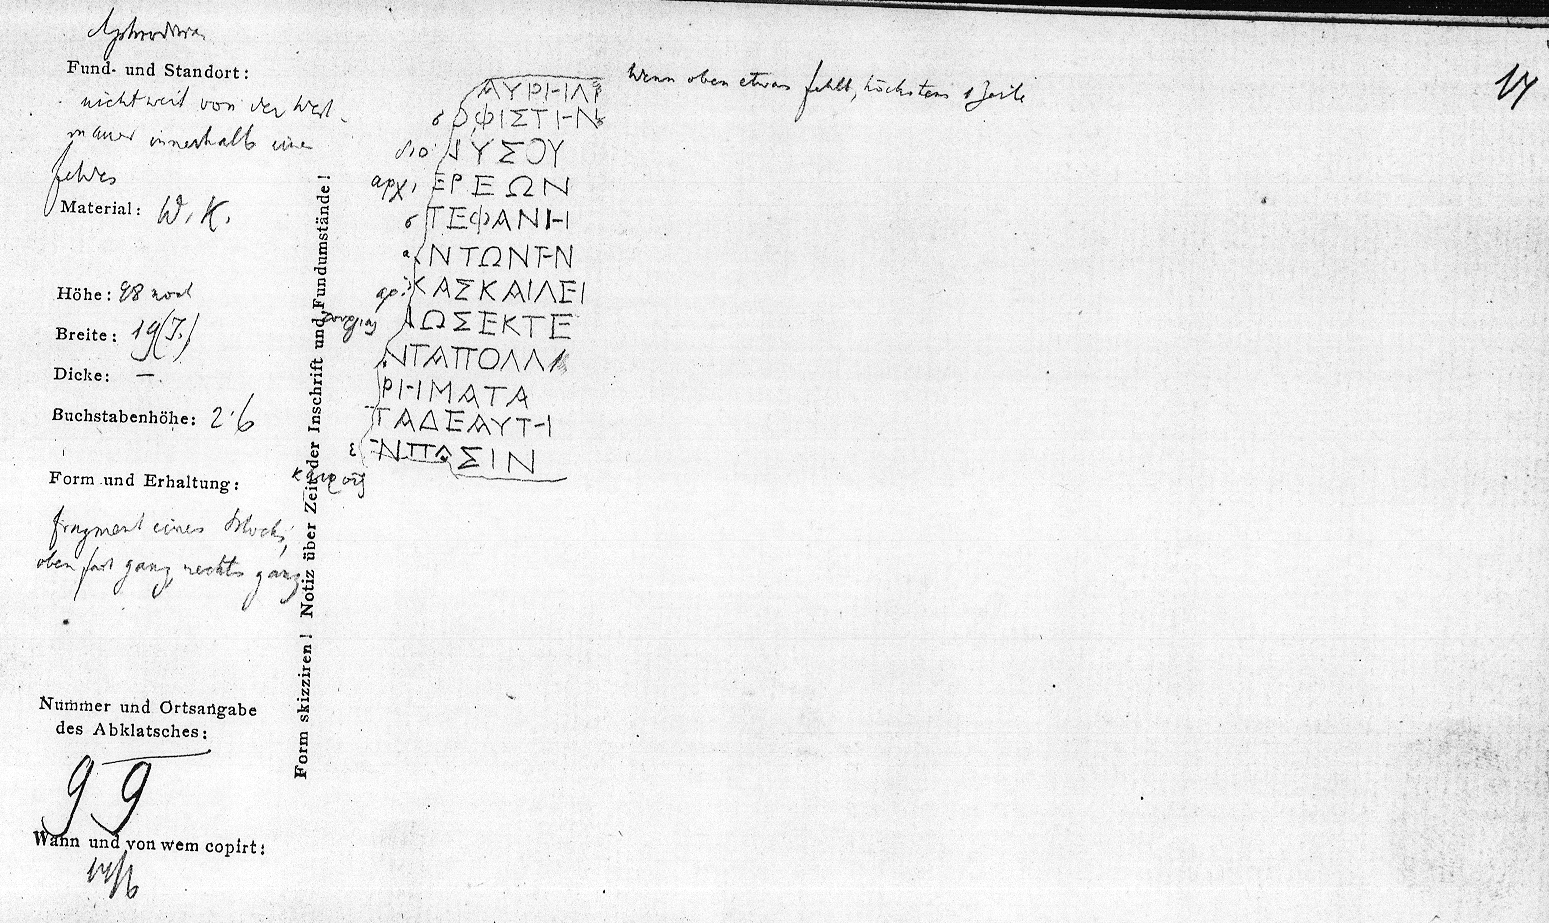 Aphrodisias
Fund- und Standort:
nicht weit von der West-
mauer innerhalb eines
Feldes
Material: W. K.
Höhe: 98 noch
Breite: 19 (J.)
Dicke: —.
Buchstabenhöhe: 2·6
Form und Erhaltung:
Fragment eines Blocks,
oben fast ganz, rechts ganz
Nummer und Ortsangabe
des Abklatsches:
99
Wann und von wem copirt:
Form skizziren! Notiz über Zeit der Inschrift und Fundumstände!
Wenn oben etwas fehlt, höchstens 1 Zeile
17
ΑΥΡΗΛ
σ ΟΦΙΣΤΗΝ
διο ΝΥΣΟΥ
αρχι ΕΡΕΩΝ
σ ΤΕΦΑΝΗ
α ΝΤΩΝΤΗΝ
αρ ΚΑΣΚΑΙΛΕΙ
τουργιας ΛΩΣΕΚΤΕ
ΝΤΑΠΟΛΛΑ
ΡΗΜΑΤΑ
ΤΑΔΕΑΥΤΗ
ε ΝΠΑΣΙΝ
καιροῖς